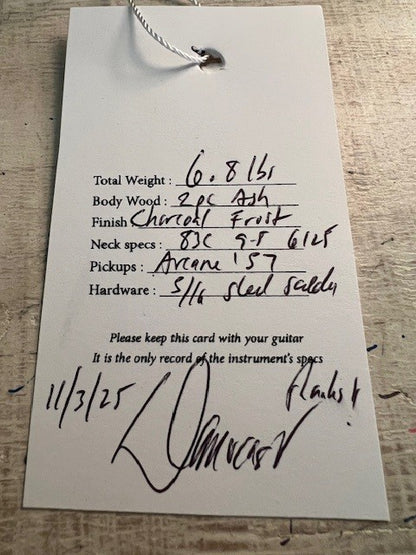 Total Weight : 6.8 lbs
Body Wood : 2pc Ash
Finish Charcoal Frost
Neck specs : 83C 9.5 6125
Pickups : Arcane '57
Hardware : 5/16 steel saddles
Please keep this card with your guitar
It is the only record of the instrument's specs
11/3/25
Thanks!